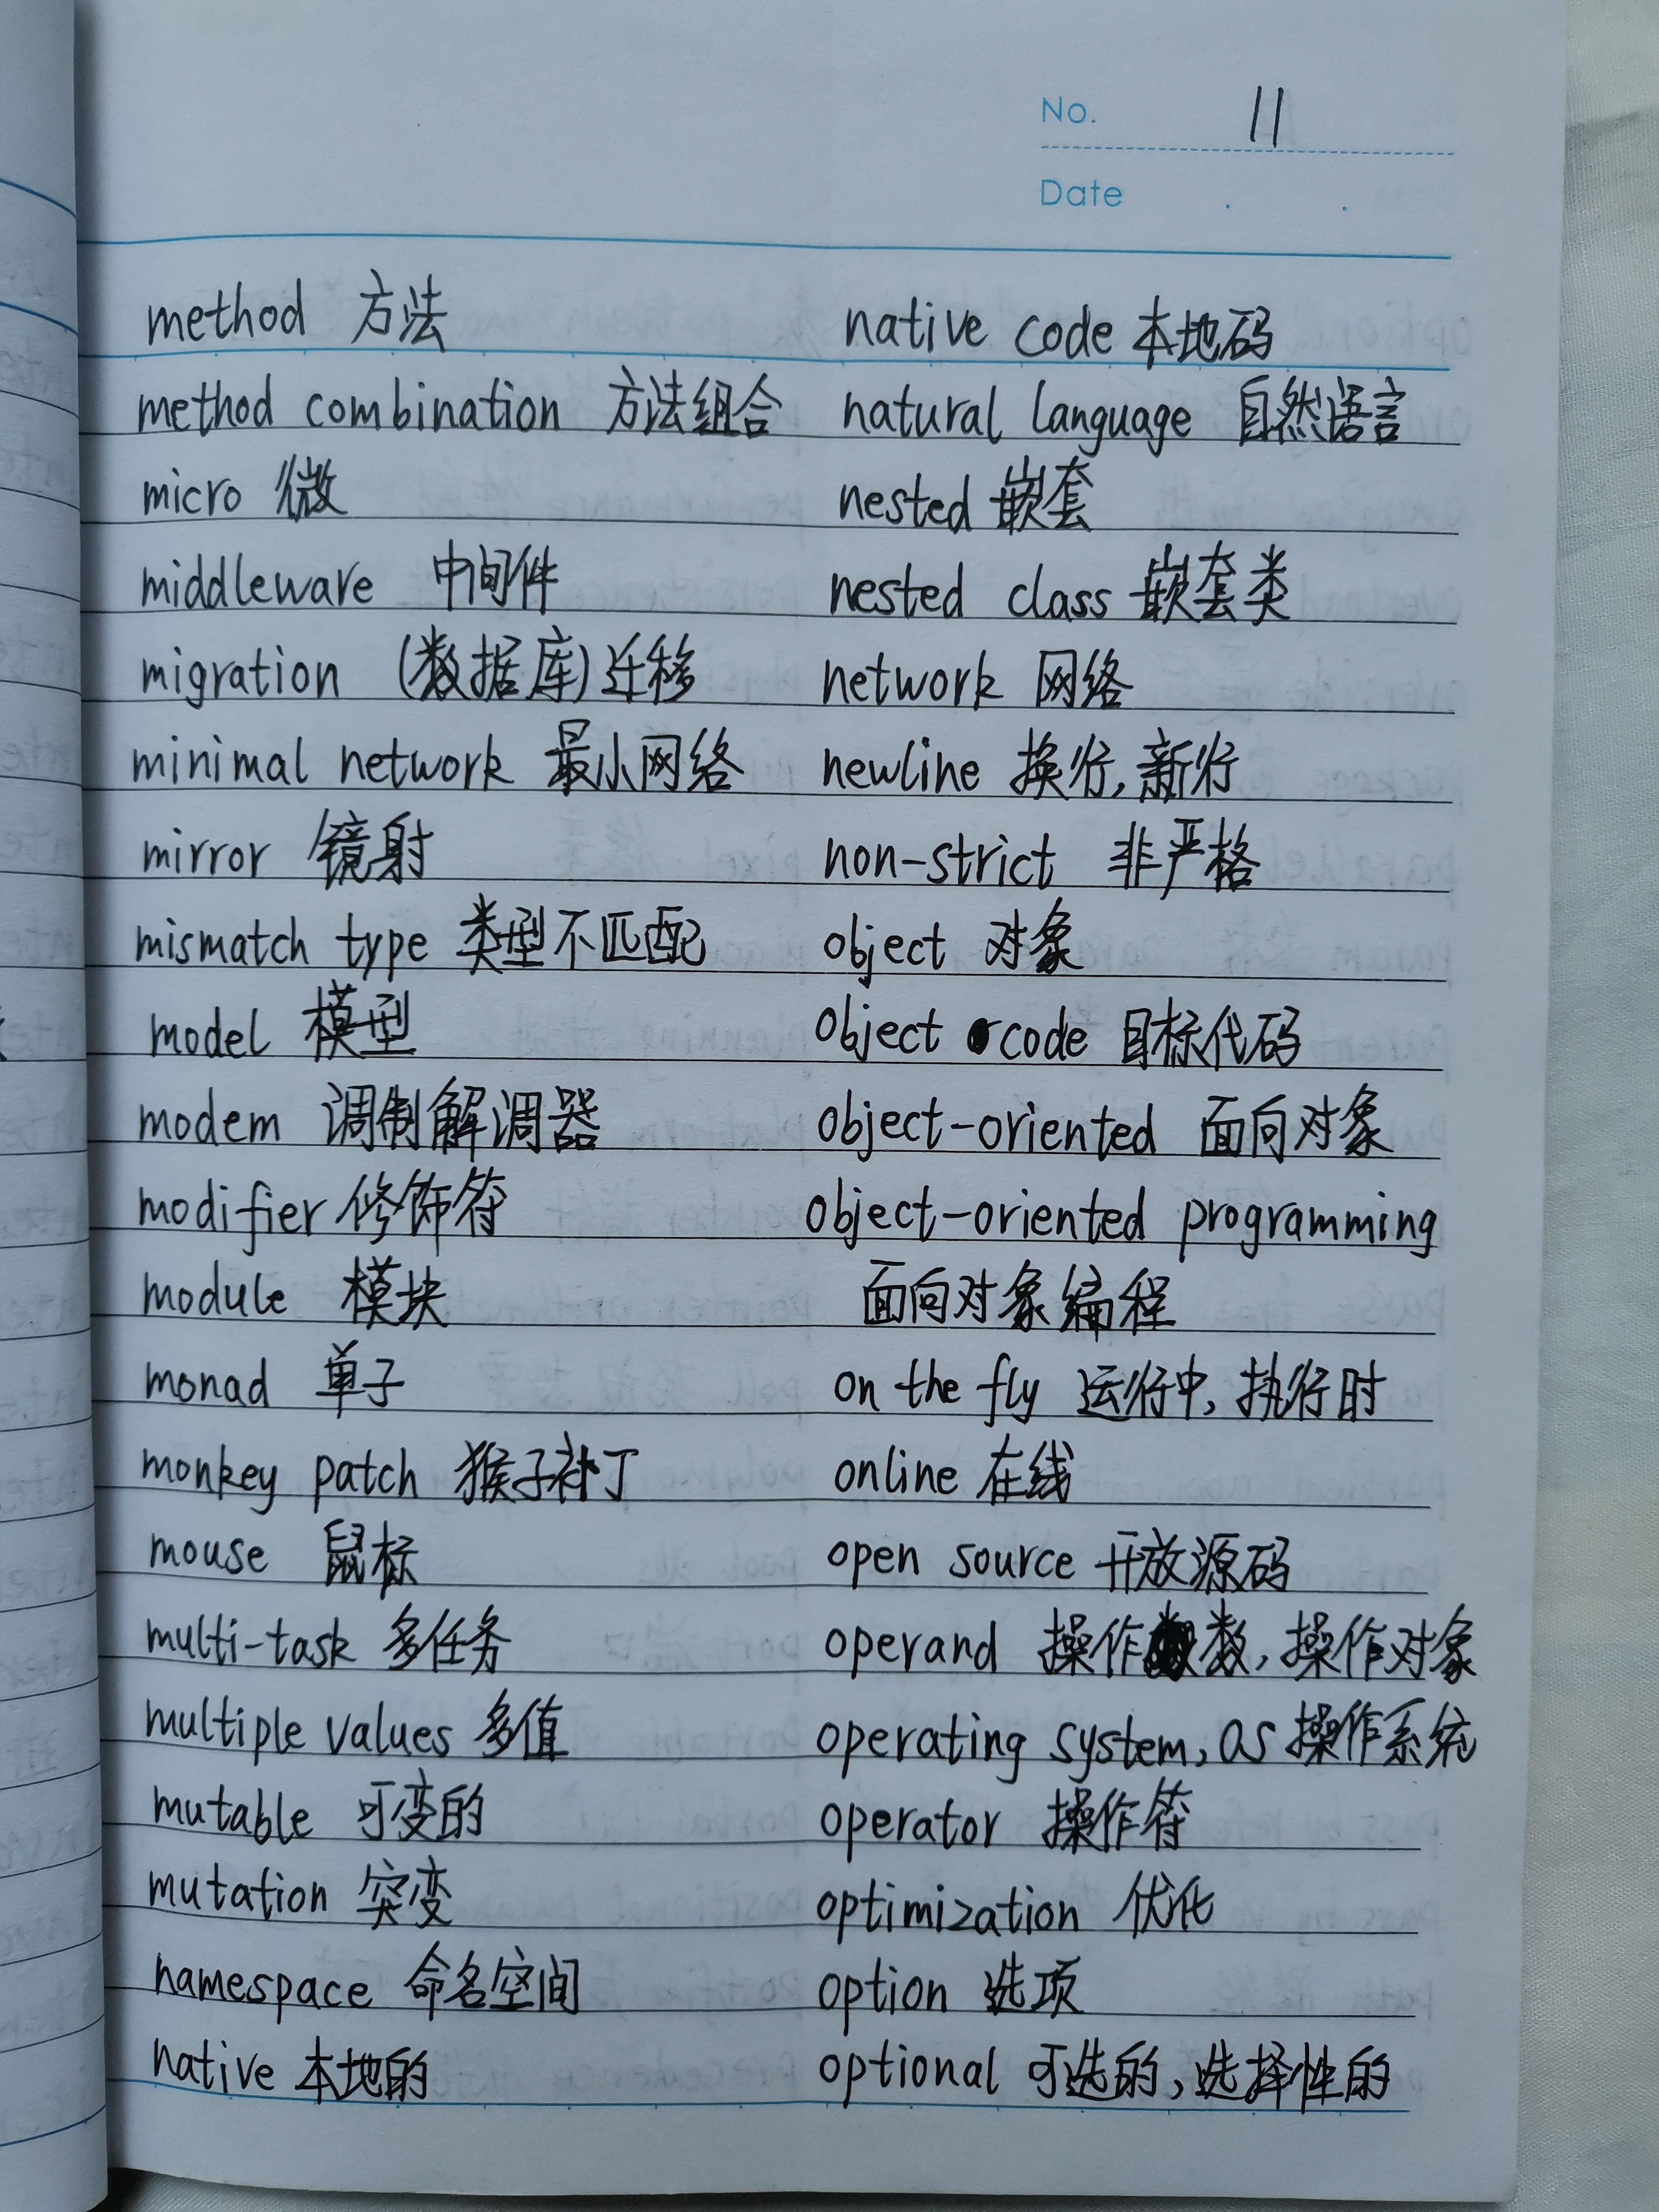 No. 11
Date
method 方法
method combination 方法组合
micro 微
middleware 中间件
migration (数据库)迁移
minimal network 最小网络
mirror 镜射
mismatch type 类型不匹配
model 模型
modem 调制解调器
modifier 修饰符
module 模块
monad 单子
monkey patch 猴子补丁
mouse 鼠标
multi-task 多任务
multiple values 多值
mutable 可变的
mutation 突变
namespace 命名空间
native 本地的
native code 本地码
natural language 自然语言
nested 嵌套
nested class 嵌套类
network 网络
newline 换行,新行
non-strict 非严格
object 对象
object code 目标代码
object-oriented 面向对象
object-oriented programming
面向对象编程
on the fly 运行中,执行时
online 在线
open source 开放源码
operand 操作数,操作对象
operating system, OS 操作系统
operator 操作符
optimization 优化
option 选项
optional 可选的,选择性的